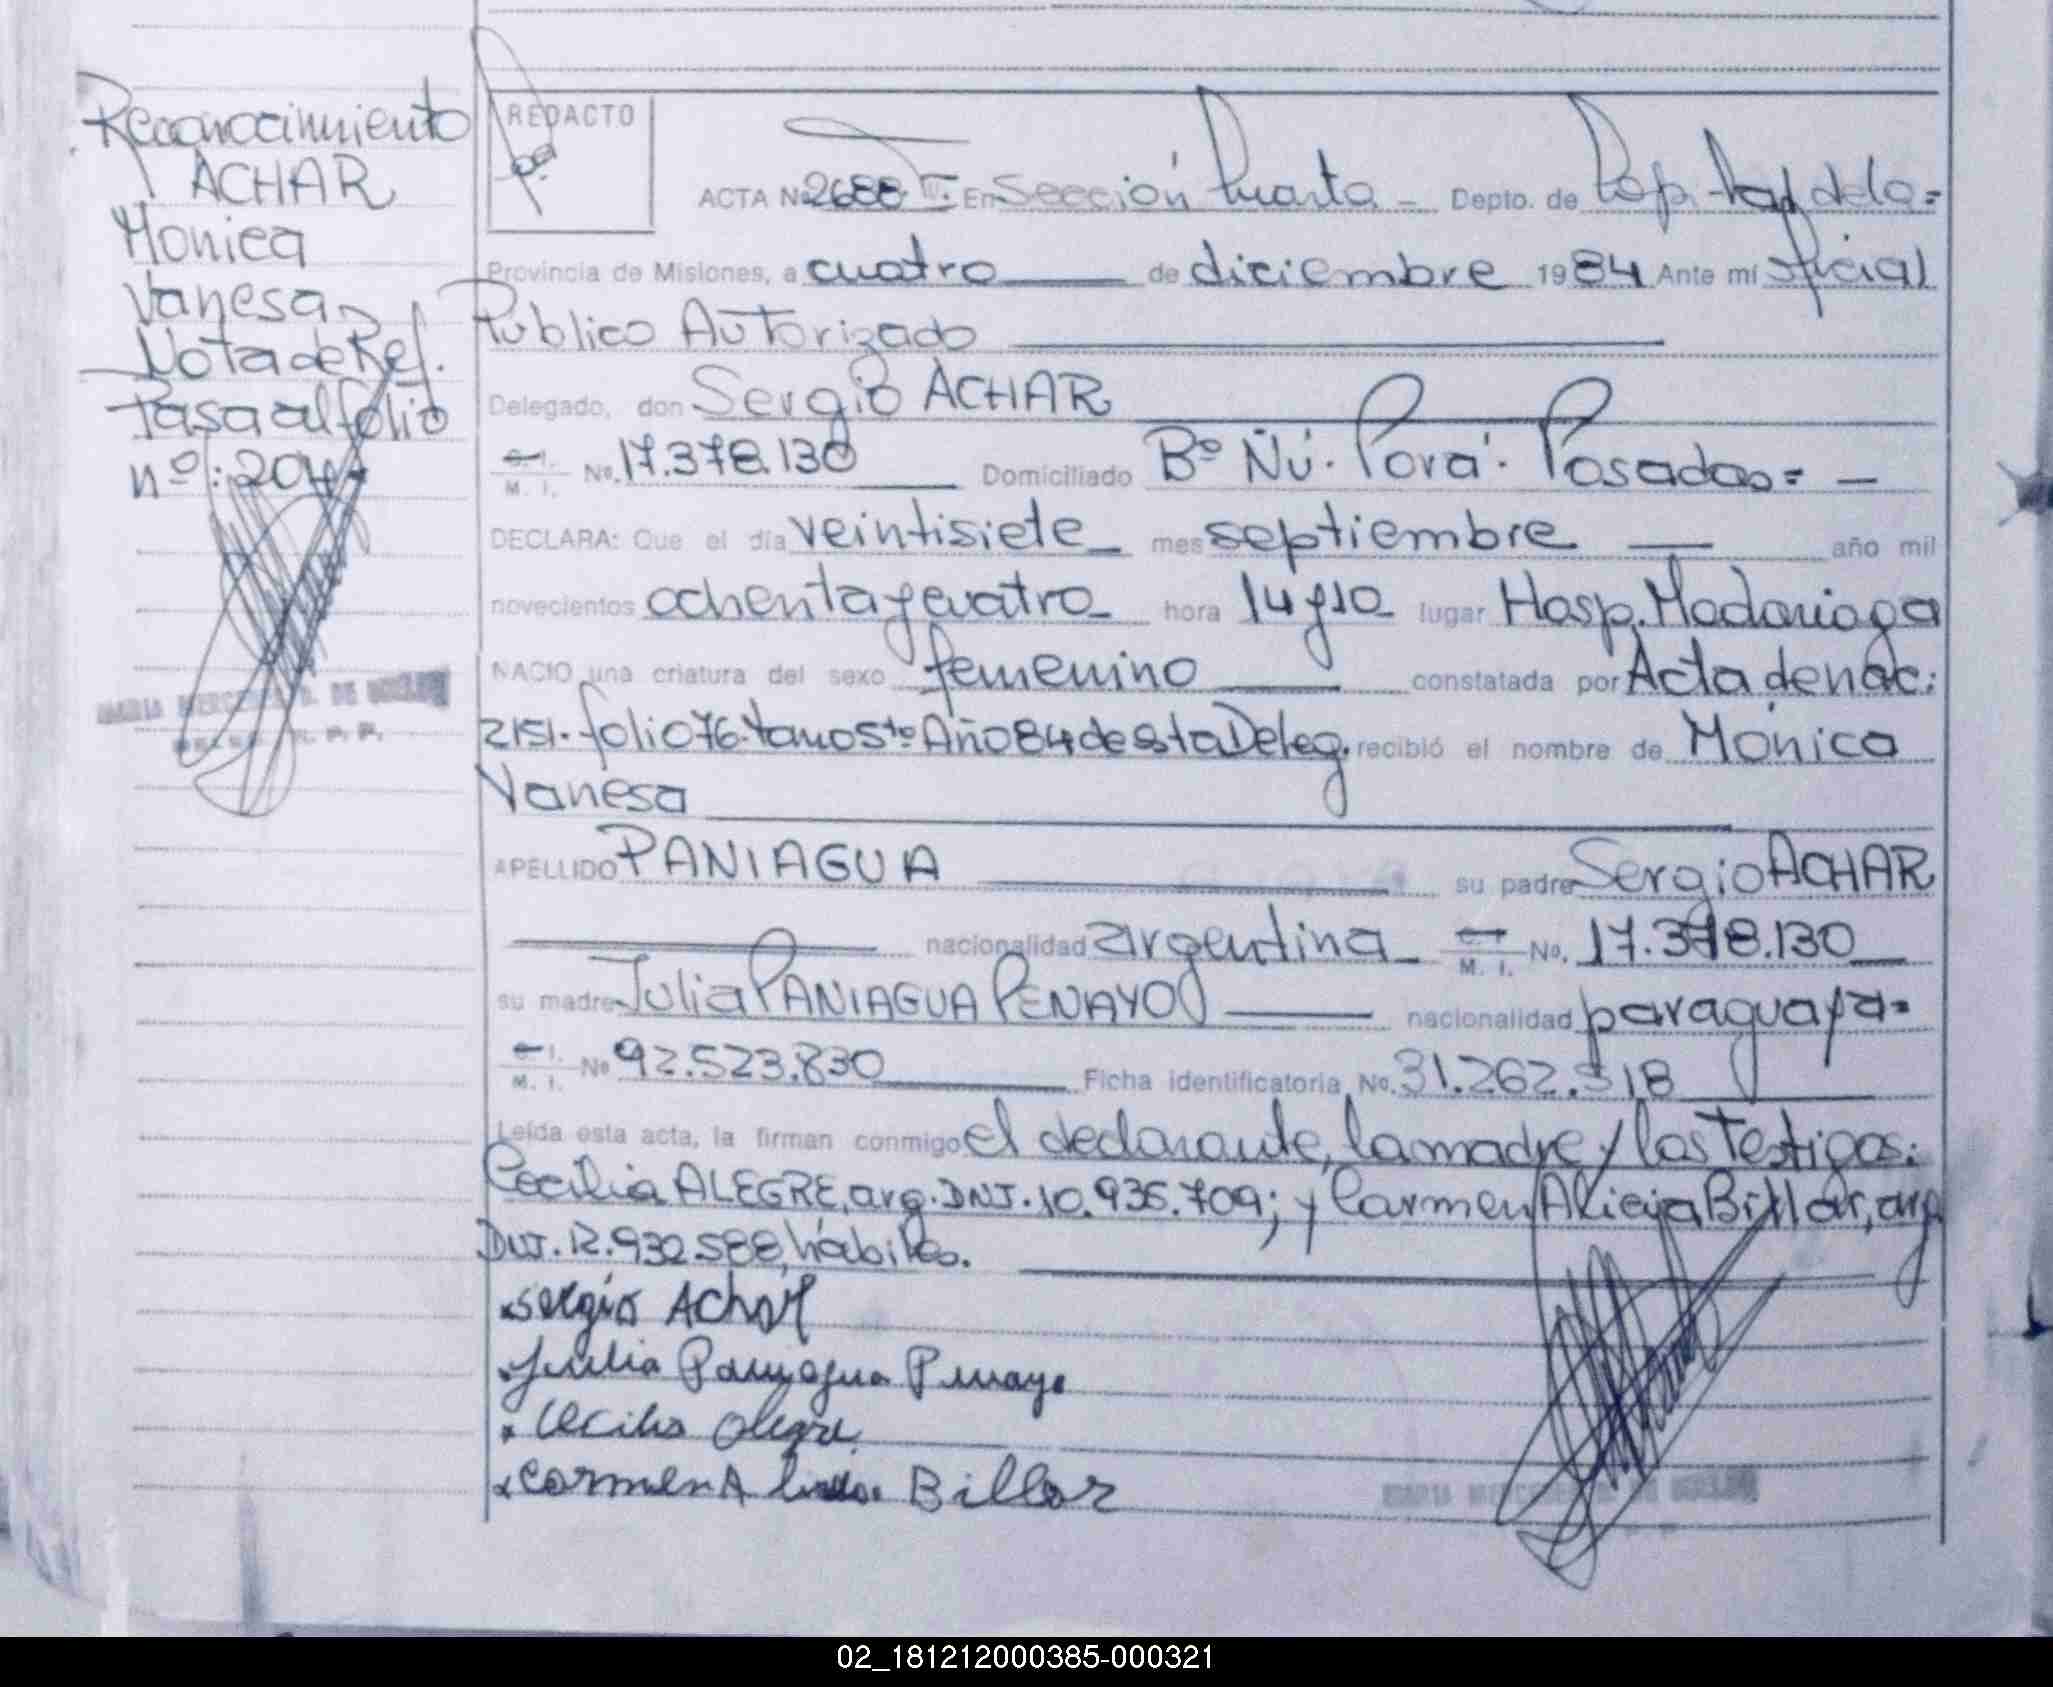 Reconocimiento
ACHAR
Monica
Vanesa
Nota de Ref.
Pasa al folio
nº: 204
MARIA MERCEDES D. DE
REDACTO
ACTA Nº 2688 T. III En Sección Cuarta - Depto. de Cap.
Provincia de Misiones, a cuatro de diciembre 1984 Ante mí Oficial
Publico Autorizado
Delegado, don Sergio ACHAR
C. I. M. I. No. 17.378.130 Domiciliado Bº Ñú. Porá. Posadas= -
DECLARA: Que el día veintisiete mes septiembre año mil
novecientos ochenta y cuatro hora 14 y 10 lugar Hosp. Madariaga
NACIO una criatura del sexo femenino constatada por Acta de nac:
2151. folio 76. tomo 5to Año 84 de esta Deleg. recibió el nombre de Mónica
Vanesa
APELLIDO PANIAGUA su padre Sergio ACHAR
nacionalidad argentina C. I. M. I. No. 17.378.130
su madre Julia PANIAGUA PENAYO nacionalidad paraguaya=
C. I. M. I. No 92.523.830 Ficha identificatoria No. 31.262.518
Leída esta acta, la firman conmigo el declarante, la madre y los Testigos:
Cecilia ALEGRE, arg. DNI. 10.935.709; y Carmen Alicia Billar, arg
DNI. 12.932.588, hábiles.
Sergio Achar
Julia Paniagua Penayo
Cecilia Alegre
Carmen A Billar
02_181212000385-000321